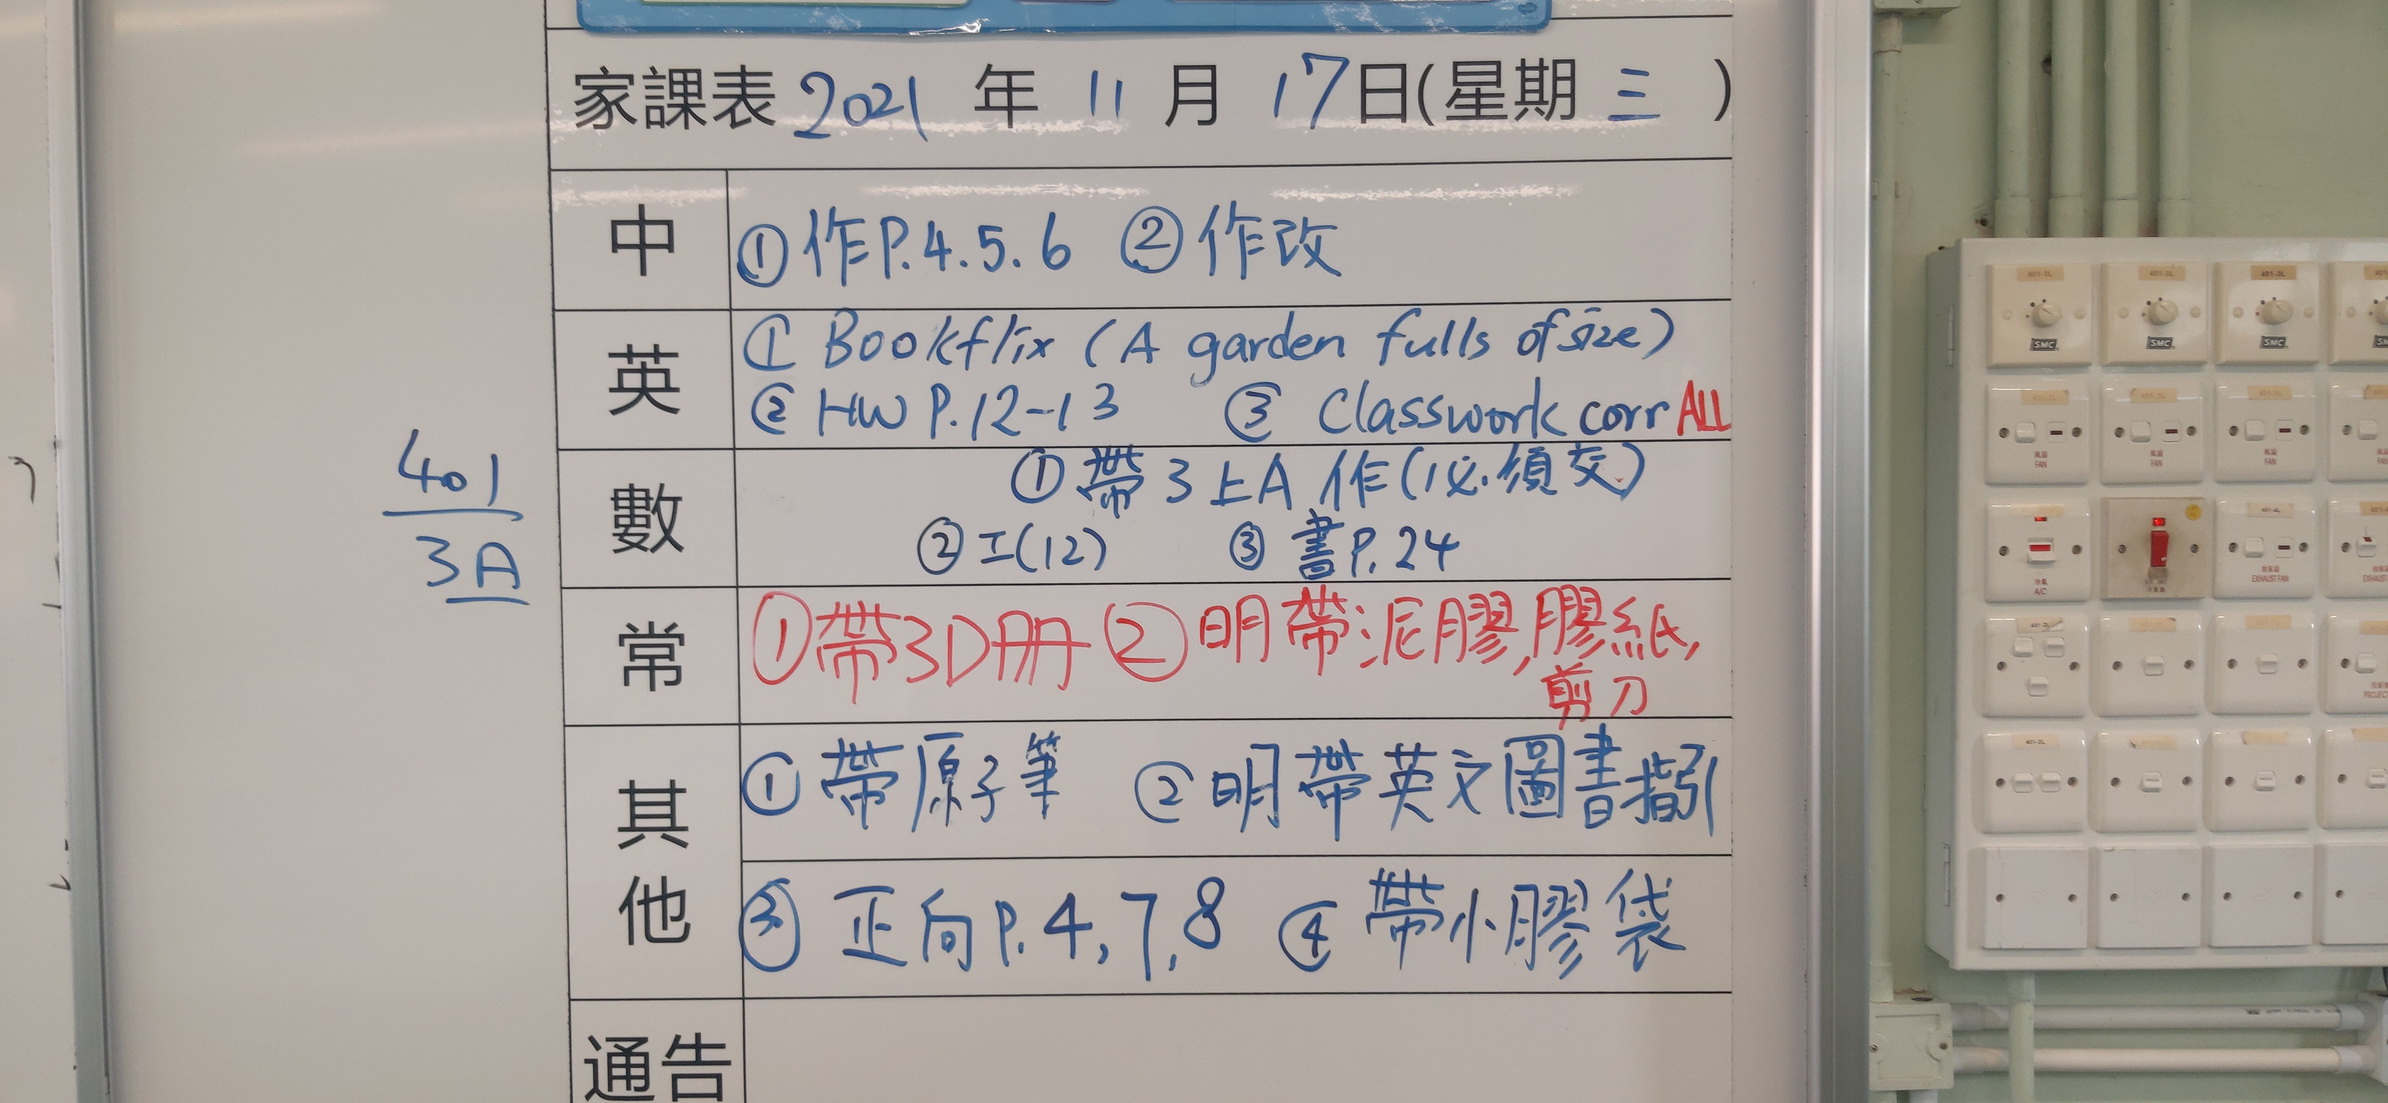 家課表 2021 年 11 月 17 日(星期 三 )
中 ①作P.4.5.6 ②作改
英 ① Bookflix (A garden fulls of size)
② HW P.12-13 ③ Classwork corr ALL
數 ①帶3上A作(必須交)
②工(12) ③書P.24
常 ①帶3D冊 ②明帶泥膠,膠紙,
剪刀
其他 ①帶原子筆 ②明帶英文圖書指引
③正向P.4,7,8 ④帶小膠袋
通告
401
3A
401-3L 401-3L 401-3L
SMC SMC SMC
風扇 風扇 風扇
FAN FAN FAN
401-4L
冷氣 抽氣扇
A/C EXHAUST FAN
401-2L